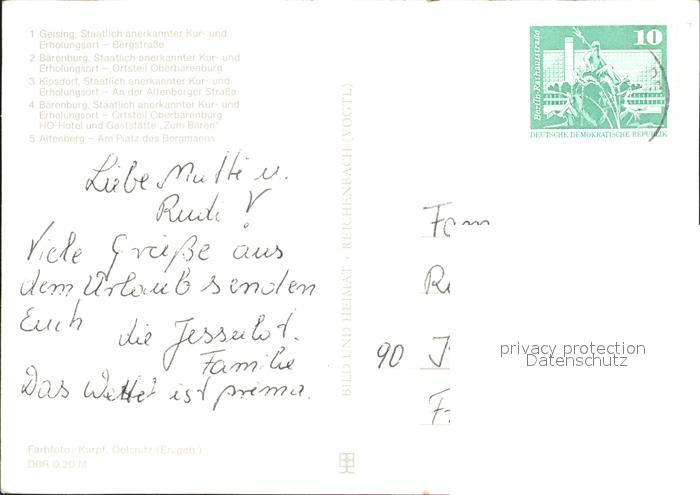 1 Geising, Staatlich anerkannter Kur- und
Erholungsort – Bergstraße
2 Bärenburg, Staatlich anerkannter Kur- und
Erholungsort – Ortsteil Oberbärenburg
3 Kipsdorf, Staatlich anerkannter Kur- und
Erholungsort – An der Altenberger Straße
4 Bärenburg, Staatlich anerkannter Kur- und
Erholungsort – Ortsteil Oberbärenburg
HO-Hotel und Gaststätte „Zum Bären"
5 Altenberg – Am Platz des Bergmanns
Liebe Mutti u.
Rudi!
Viele Grüße aus
dem Urlaub senden
Euch die
Familie
Das Wetter ist prima.
Farbfoto: Karpf, Oelsnitz (Erzgeb.)
DDR 0,20 M
BILD UND HEIMAT · REICHENBACH (VOGTL)
Berlin-Rathausstraße
10
DEUTSCHE DEMOKRATISCHE REPUBLIK
Fam
90
privacy protection
Datenschutz